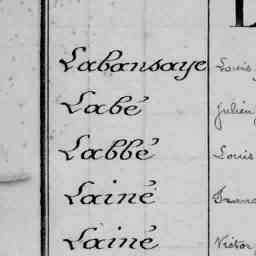 L
Labansaye Louis
Labé Julien
Labbé Louis
Lainé
Lainé Victor